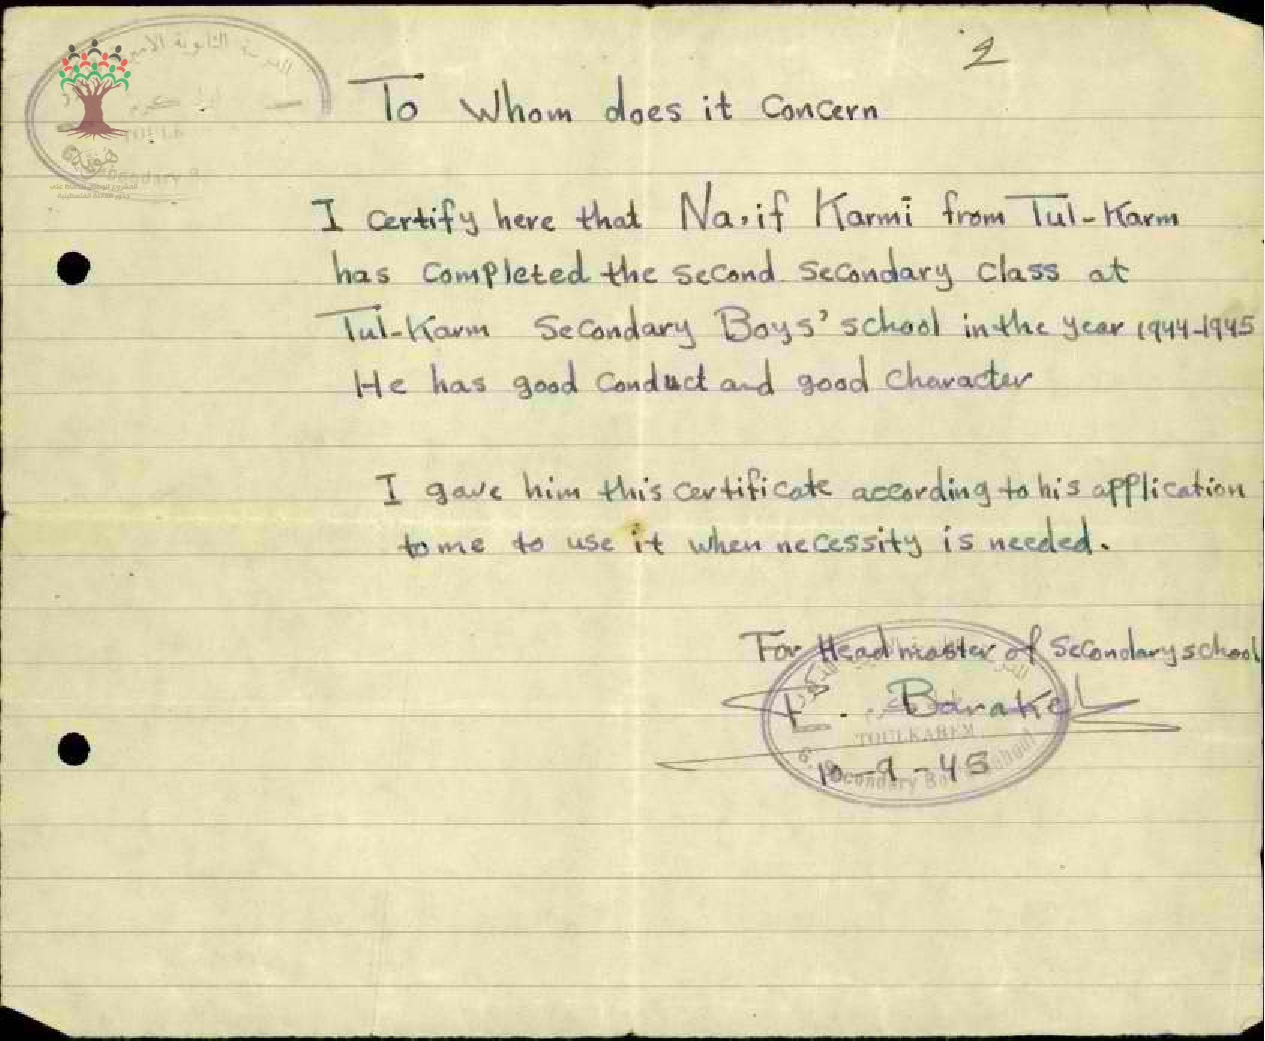 2
To Whom does it Concern
I certify here that Na,if Karmi from Tul-Karm
has completed the second secondary class at
Tul-Karm Secondary Boys' school in the year 1944-1945
He has good conduct and good character
I gave him this certificate according to his application
to me to use it when necessity is needed.
For Headmaster of Secondary school
Barakat
TOULKAREM
10-9-45
Secondary